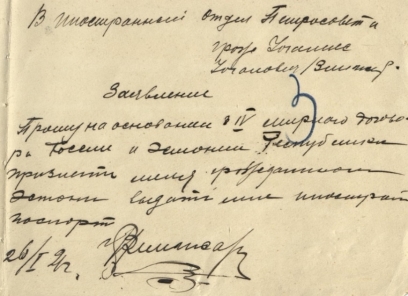 В иностранный отдел Петросовета
Иоганнес
Заявление
Прошу на основании § IV мирного догово-
ра России и Эстонии Республики
признать меня гражданином
Эстони выдать мне иностран
паспорт
26/I 21г.